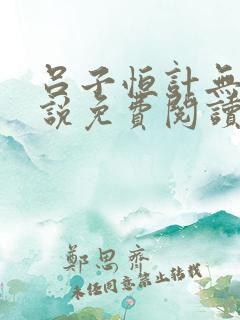 呂子恒計無
說免費閱讀
鄭思齊
未經同意禁止轉載